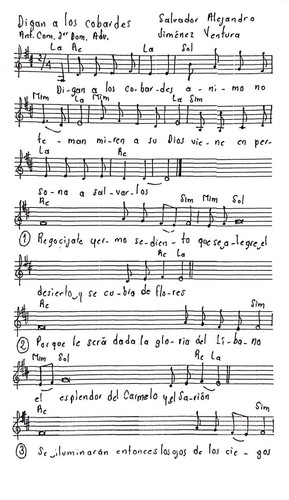 Digan a los cobardes
Salvador Alejandro
Ant. Com. 3er Dom. Adv.
Jiménez Ventura
La Re La Sol
2/4
Di-gan a los co-bar-des a-ni-mo no
Mim La Mim La Sim
te-man mi-ren a su Dios vie-ne en per-
Re La
so-na a sal-var-los
Re Sim Mim Sol
① Regocijate yer-mo se-dien-to que se a-legre, el
Re La
desierto, y se cu-bra de flo-res
Re Sim
② Porque le será dada la glo-ria del Lí-ba-no
Mim Sol Re La
el esplendor del Carmelo y el Sa-rión
Re Sim
③ Se iluminarán entonces los ojos de los cie-gos